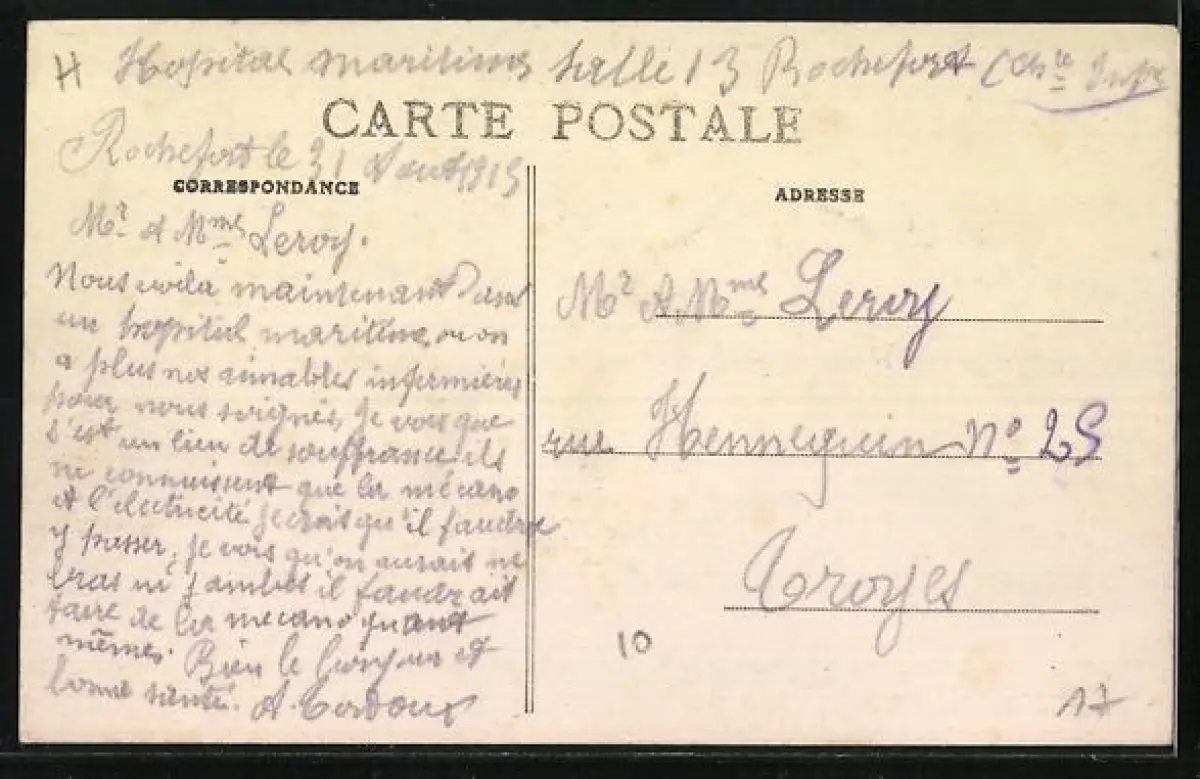 H Hopital maritime salle 13 Rochefort (Chte Infre
CARTE POSTALE
Rochefort le 31 Aout 1915
CORRESPONDANCE
ADRESSE
Mr & Mme Leroy.
Nous voila maintenant dans
un hopital maritime ou on
a plus nos aimables infermières
pour nous soignés, Je vois que
s'est un lieu de souffrance ils
ne connaissent que la mécano
et l'electricité je crois qu'il faudra
y passer, je vois qu'on aurait ne
bras ni jambes il faudrait
faire de la mecano quant
mêmes. Bien le bonjour et
bonne santé. A.
Mr & Mme Leroy
rue Hennequin No 25
Troyes
10
17